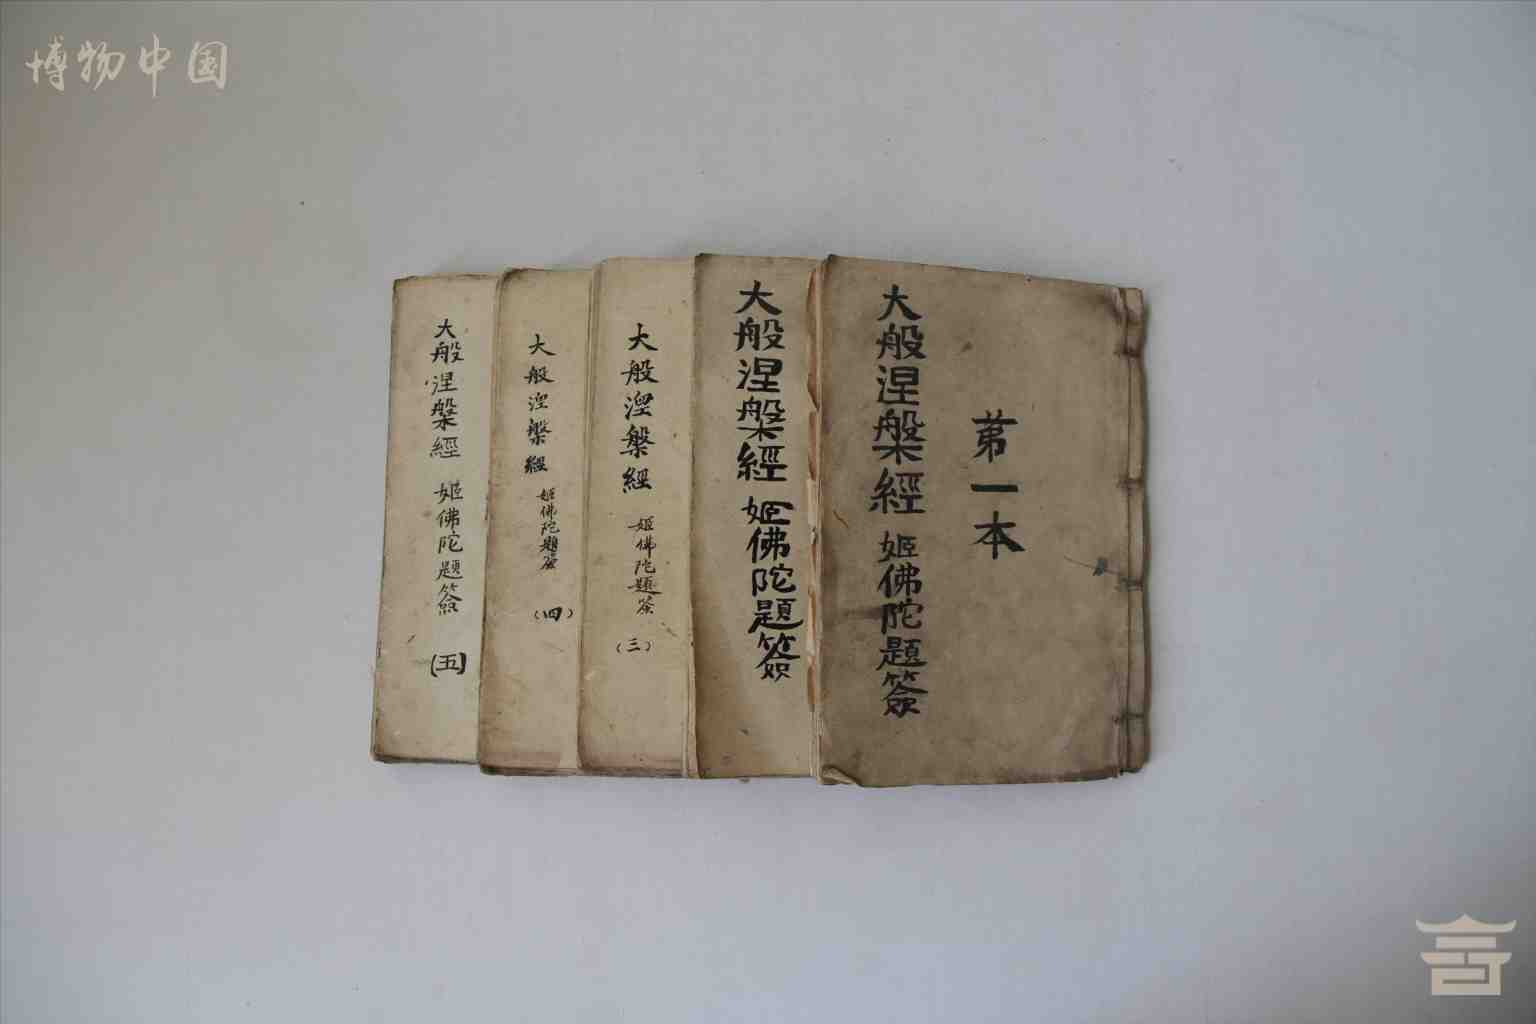 博物中国
大般涅槃經 姬佛陀題簽
第一本
大般涅槃經 姬佛陀題簽
大般涅槃經 姬佛陀題簽
(三)
大般涅槃經 姬佛陀題簽
(四)
大般涅槃經 姬佛陀題簽
(五)